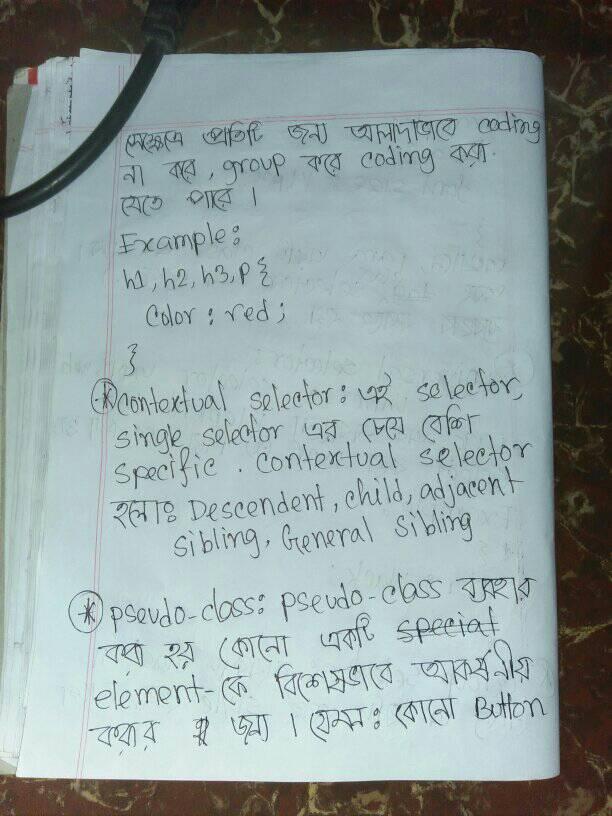 সেক্ষেত্রে প্রতিটি জন্য আলাদাভাবে coding
না করে, group করে coding করা
যেতে পারে।
Example:
h1, h2, h3, p {
color: red;
}
* contextual selector: এই selector,
single selector এর চেয়ে বেশি
specific. contextual selector
হলোঃ Descendent, child, adjacent
sibling, General sibling
* pseudo-class: pseudo-class ব্যবহার
করা হয় কোনো একটি special
element-কে বিশেষভাবে আকর্ষনীয়
করার জন্য। যেমন: কোনো Button